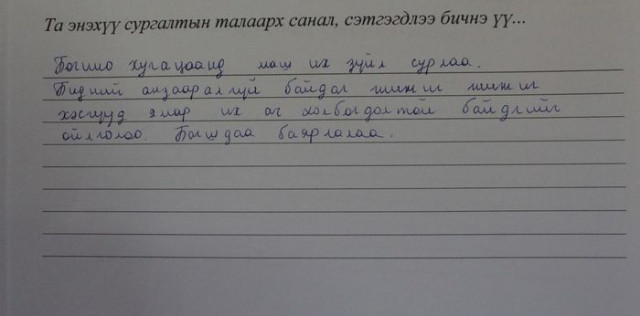 Та энэхүү сургалтын талаарх санал, сэтгэгдлээ бичнэ үү...
Богино хугацаанд маш их зүйл сурлаа.
Бидний анзааралгүй байдаг жижиг жижиг
хэсгүүд ямар их ач холбогдолтой байдгийг
ойлголоо. Багшдаа баярлалаа.